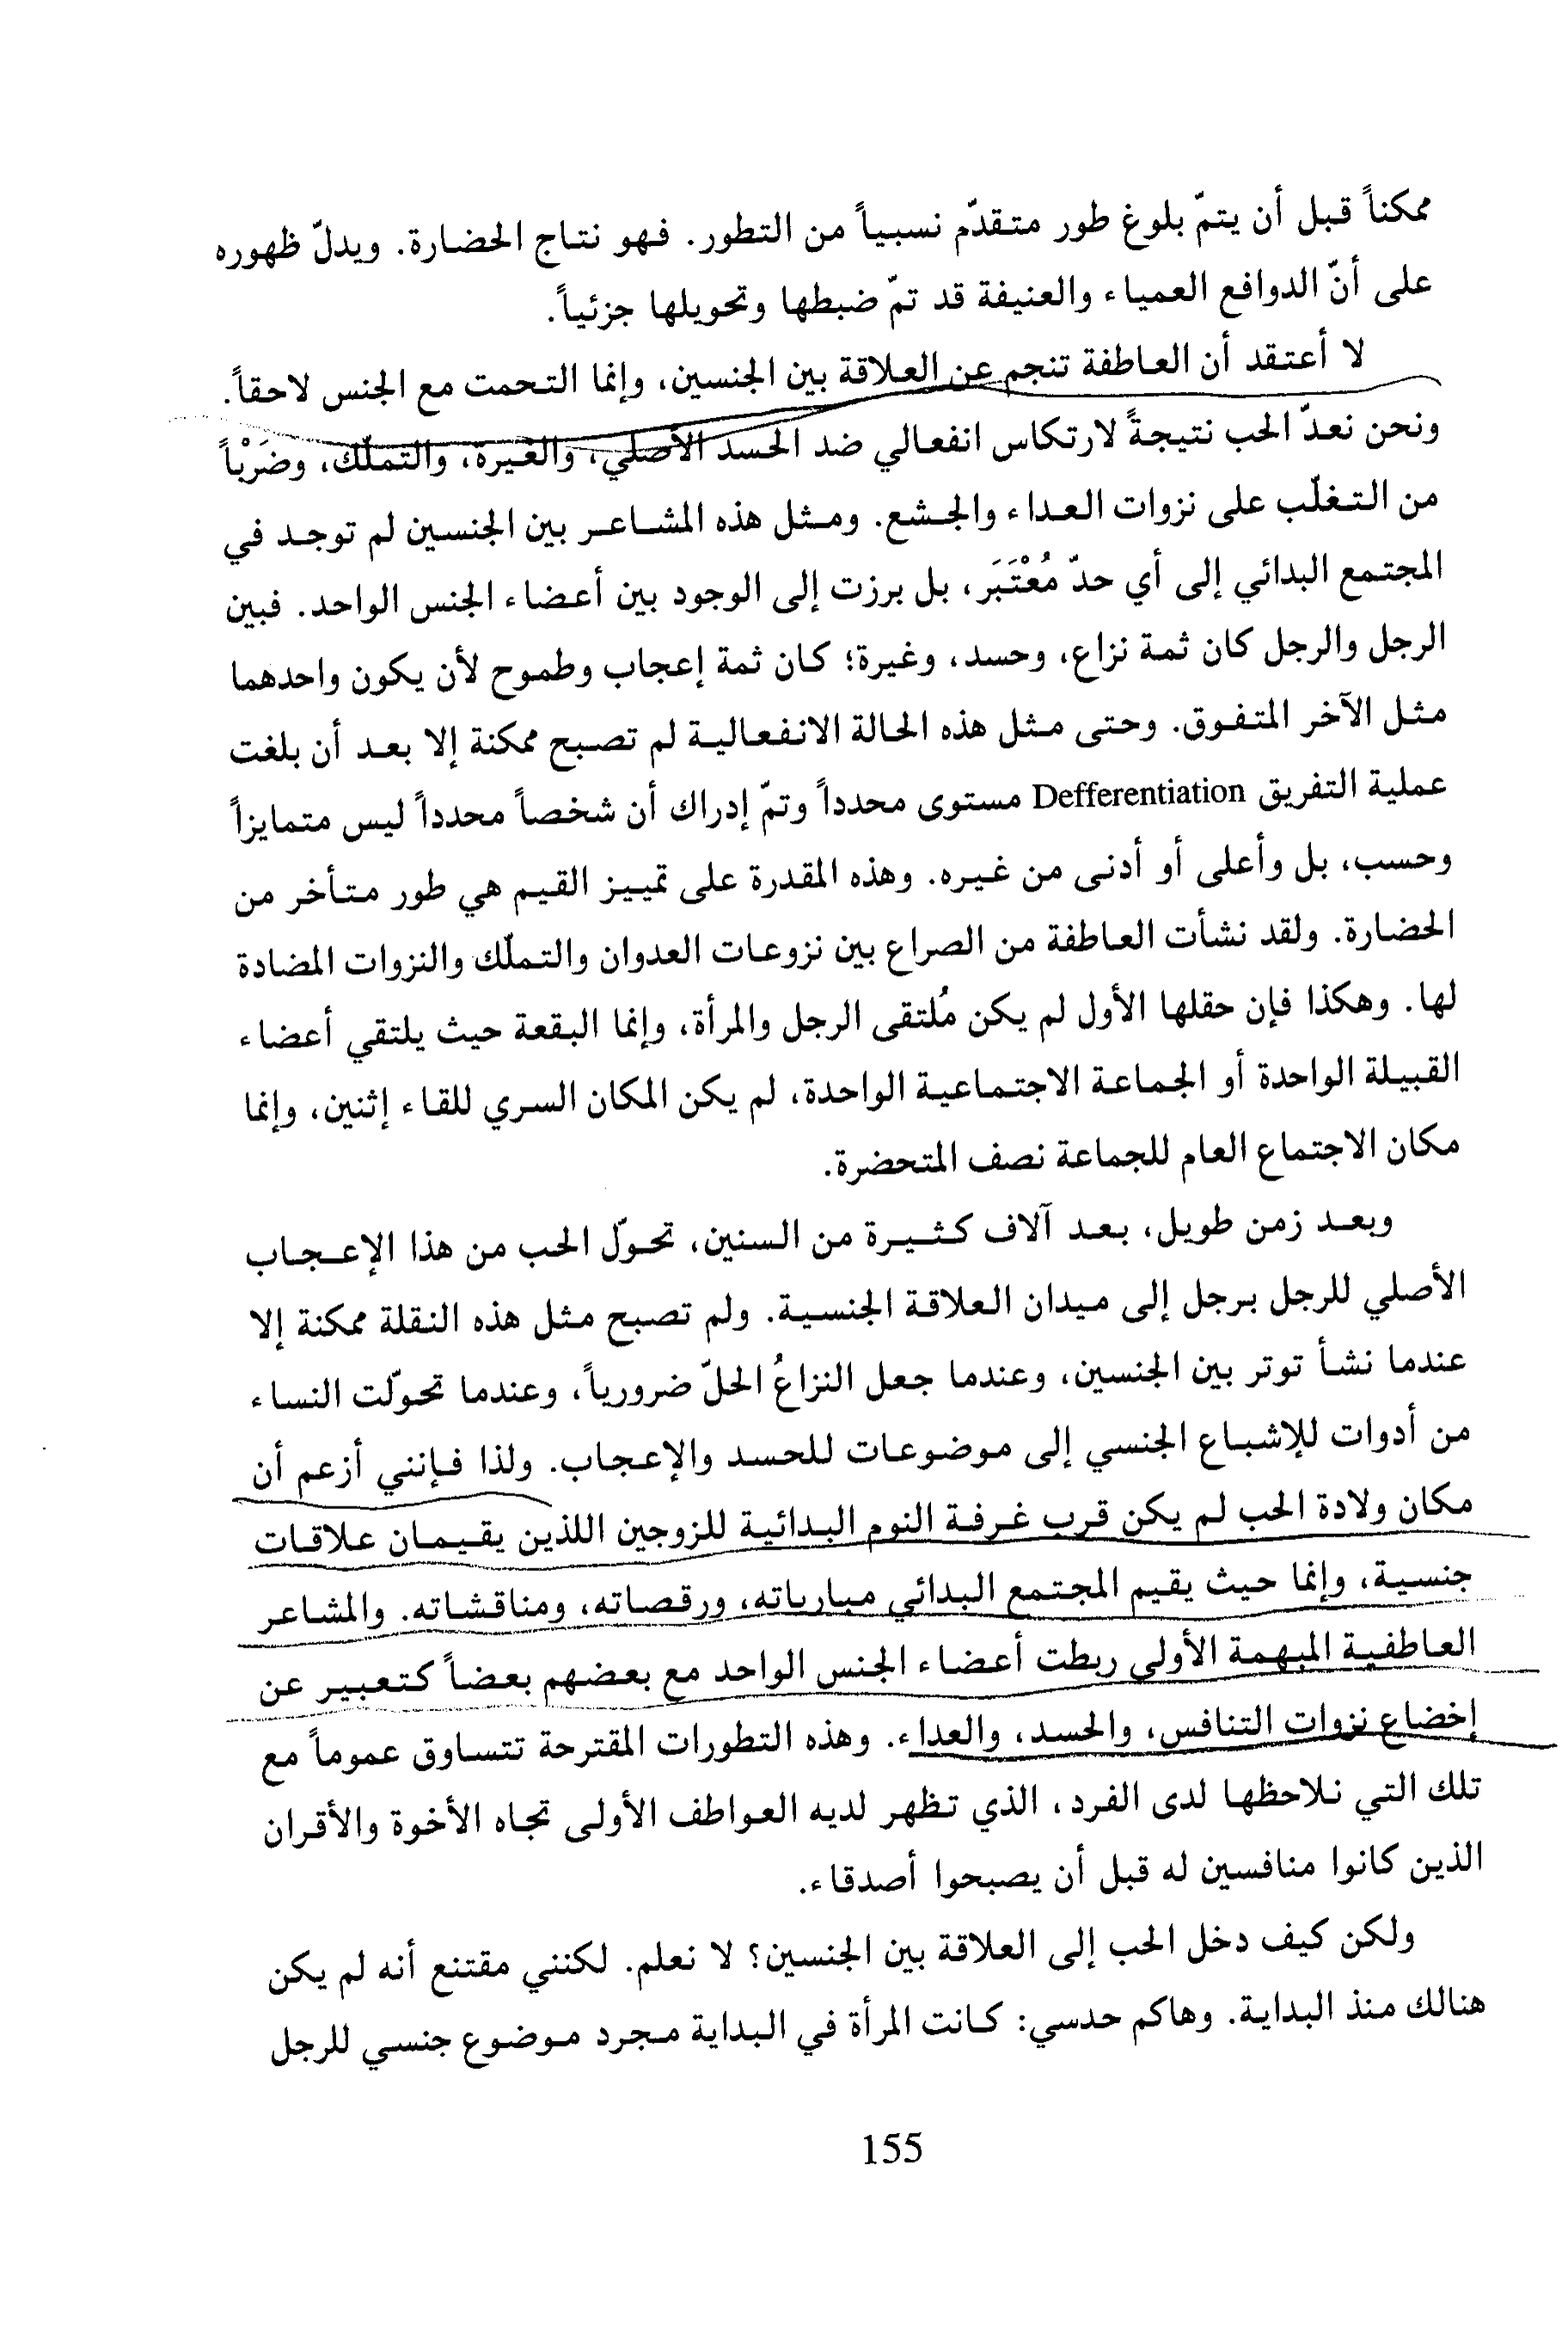 ممكناً قبل أن يتمّ بلوغ طور متقدّم نسبياً من التطور. فهو نتاج الحضارة. ويدلّ ظهوره
على أنّ الدوافع العمياء والعنيفة قد تمّ ضبطها وتحويلها جزئياً.
لا أعتقد أن العاطفة تنجم عن العلاقة بين الجنسين، وإنما التحمت مع الجنس لاحقاً.
ونحن نعدّ الحب نتيجةً لارتكاس انفعالي ضد الحسد الأصلي، والغيرة، والتملّك، وضَرْباً
من التغلّب على نزوات العداء والجشع. ومثل هذه المشاعر بين الجنسين لم توجد في
المجتمع البدائي إلى أي حدّ مُعْتَبَر، بل برزت إلى الوجود بين أعضاء الجنس الواحد. فبين
الرجل والرجل كان ثمة نزاع، وحسد، وغيرة؛ كان ثمة إعجاب وطموح لأن يكون واحدهما
مثل الآخر المتفوق. وحتى مثل هذه الحالة الانفعالية لم تصبح ممكنة إلا بعد أن بلغت
عملية التفريق Defferentiation مستوى محدداً وتمّ إدراك أن شخصاً محدداً ليس متمايزاً
وحسب، بل وأعلى أو أدنى من غيره. وهذه المقدرة على تمييز القيم هي طور متأخر من
الحضارة. ولقد نشأت العاطفة من الصراع بين نزوعات العدوان والتملّك والنزوات المضادة
لها. وهكذا فإن حقلها الأول لم يكن مُلتقى الرجل والمرأة، وإنما البقعة حيث يلتقي أعضاء
القبيلة الواحدة أو الجماعة الاجتماعية الواحدة، لم يكن المكان السري للقاء إثنين، وإنما
مكان الاجتماع العام للجماعة نصف المتحضرة.
وبعد زمن طويل، بعد آلاف كثيرة من السنين، تحوّل الحب من هذا الإعجاب
الأصلي للرجل برجل إلى ميدان العلاقة الجنسية. ولم تصبح مثل هذه النقلة ممكنة إلا
عندما نشأ توتر بين الجنسين، وعندما جعل النزاعُ الحلّ ضرورياً، وعندما تحوّلت النساء
من أدوات للإشباع الجنسي إلى موضوعات للحسد والإعجاب. ولذا فإنني أزعم أن
مكان ولادة الحب لم يكن قرب غرفة النوم البدائية للزوجين اللذين يقيمان علاقات
جنسية، وإنما حيث يقيم المجتمع البدائي مبارياته، ورقصاته، ومناقشاته. والمشاعر
العاطفية المبهمة الأولى ربطت أعضاء الجنس الواحد مع بعضهم بعضاً كتعبير عن
إخضاع نزوات التنافس، والحسد، والعداء. وهذه التطورات المقترحة تتساوق عموماً مع
تلك التي نلاحظها لدى الفرد، الذي تظهر لديه العواطف الأولى تجاه الأخوة والأقران
الذين كانوا منافسين له قبل أن يصبحوا أصدقاء.
ولكن كيف دخل الحب إلى العلاقة بين الجنسين؟ لا نعلم. لكنني مقتنع أنه لم يكن
هنالك منذ البداية. وهاكم حدسي: كانت المرأة في البداية مجرد موضوع جنسي للرجل
155